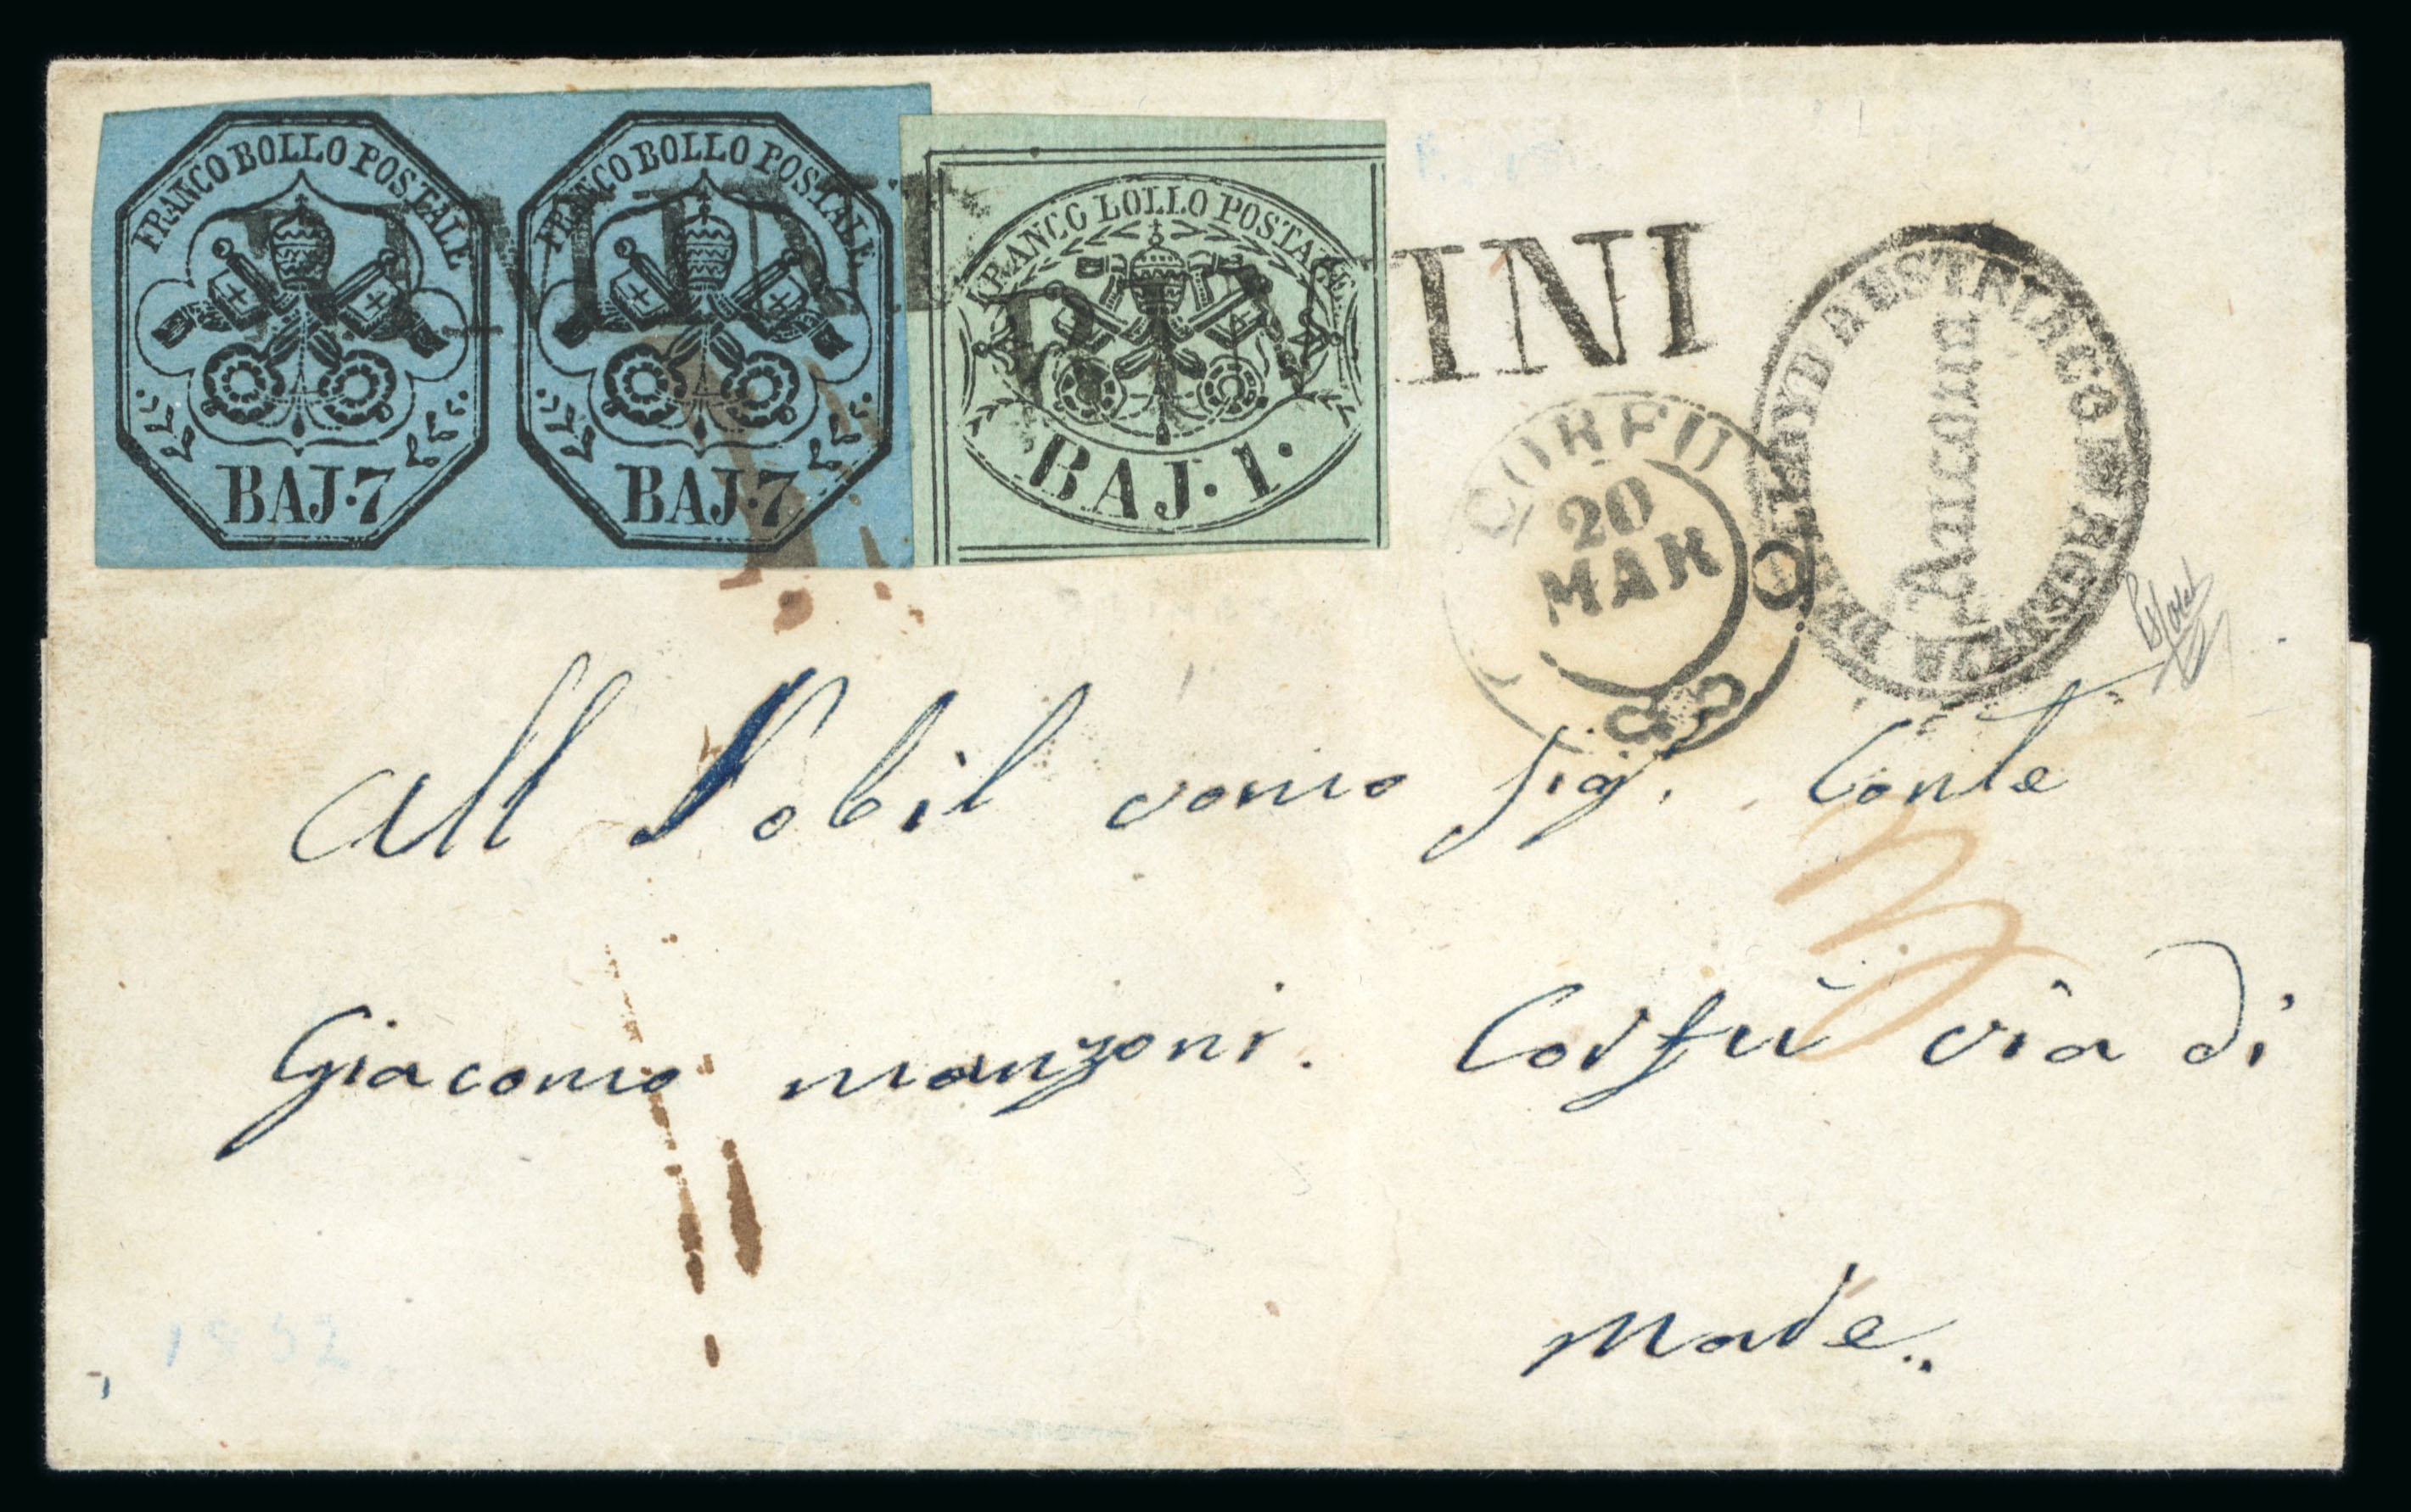 FRANCO BOLLO POSTALE
BAJ. 7
FRANCO BOLLO POSTALE
BAJ. 7
FRANCO LOLLO POSTALE
BAJ. 1.
INI
LLOYD AUSTRIACO
AGENZIA DEL
Ancona
CORFU
20
MAR
All Nobil vomo Sig. Conte
3
Giacomo manzoni. Corfu via di
Mare.
1852